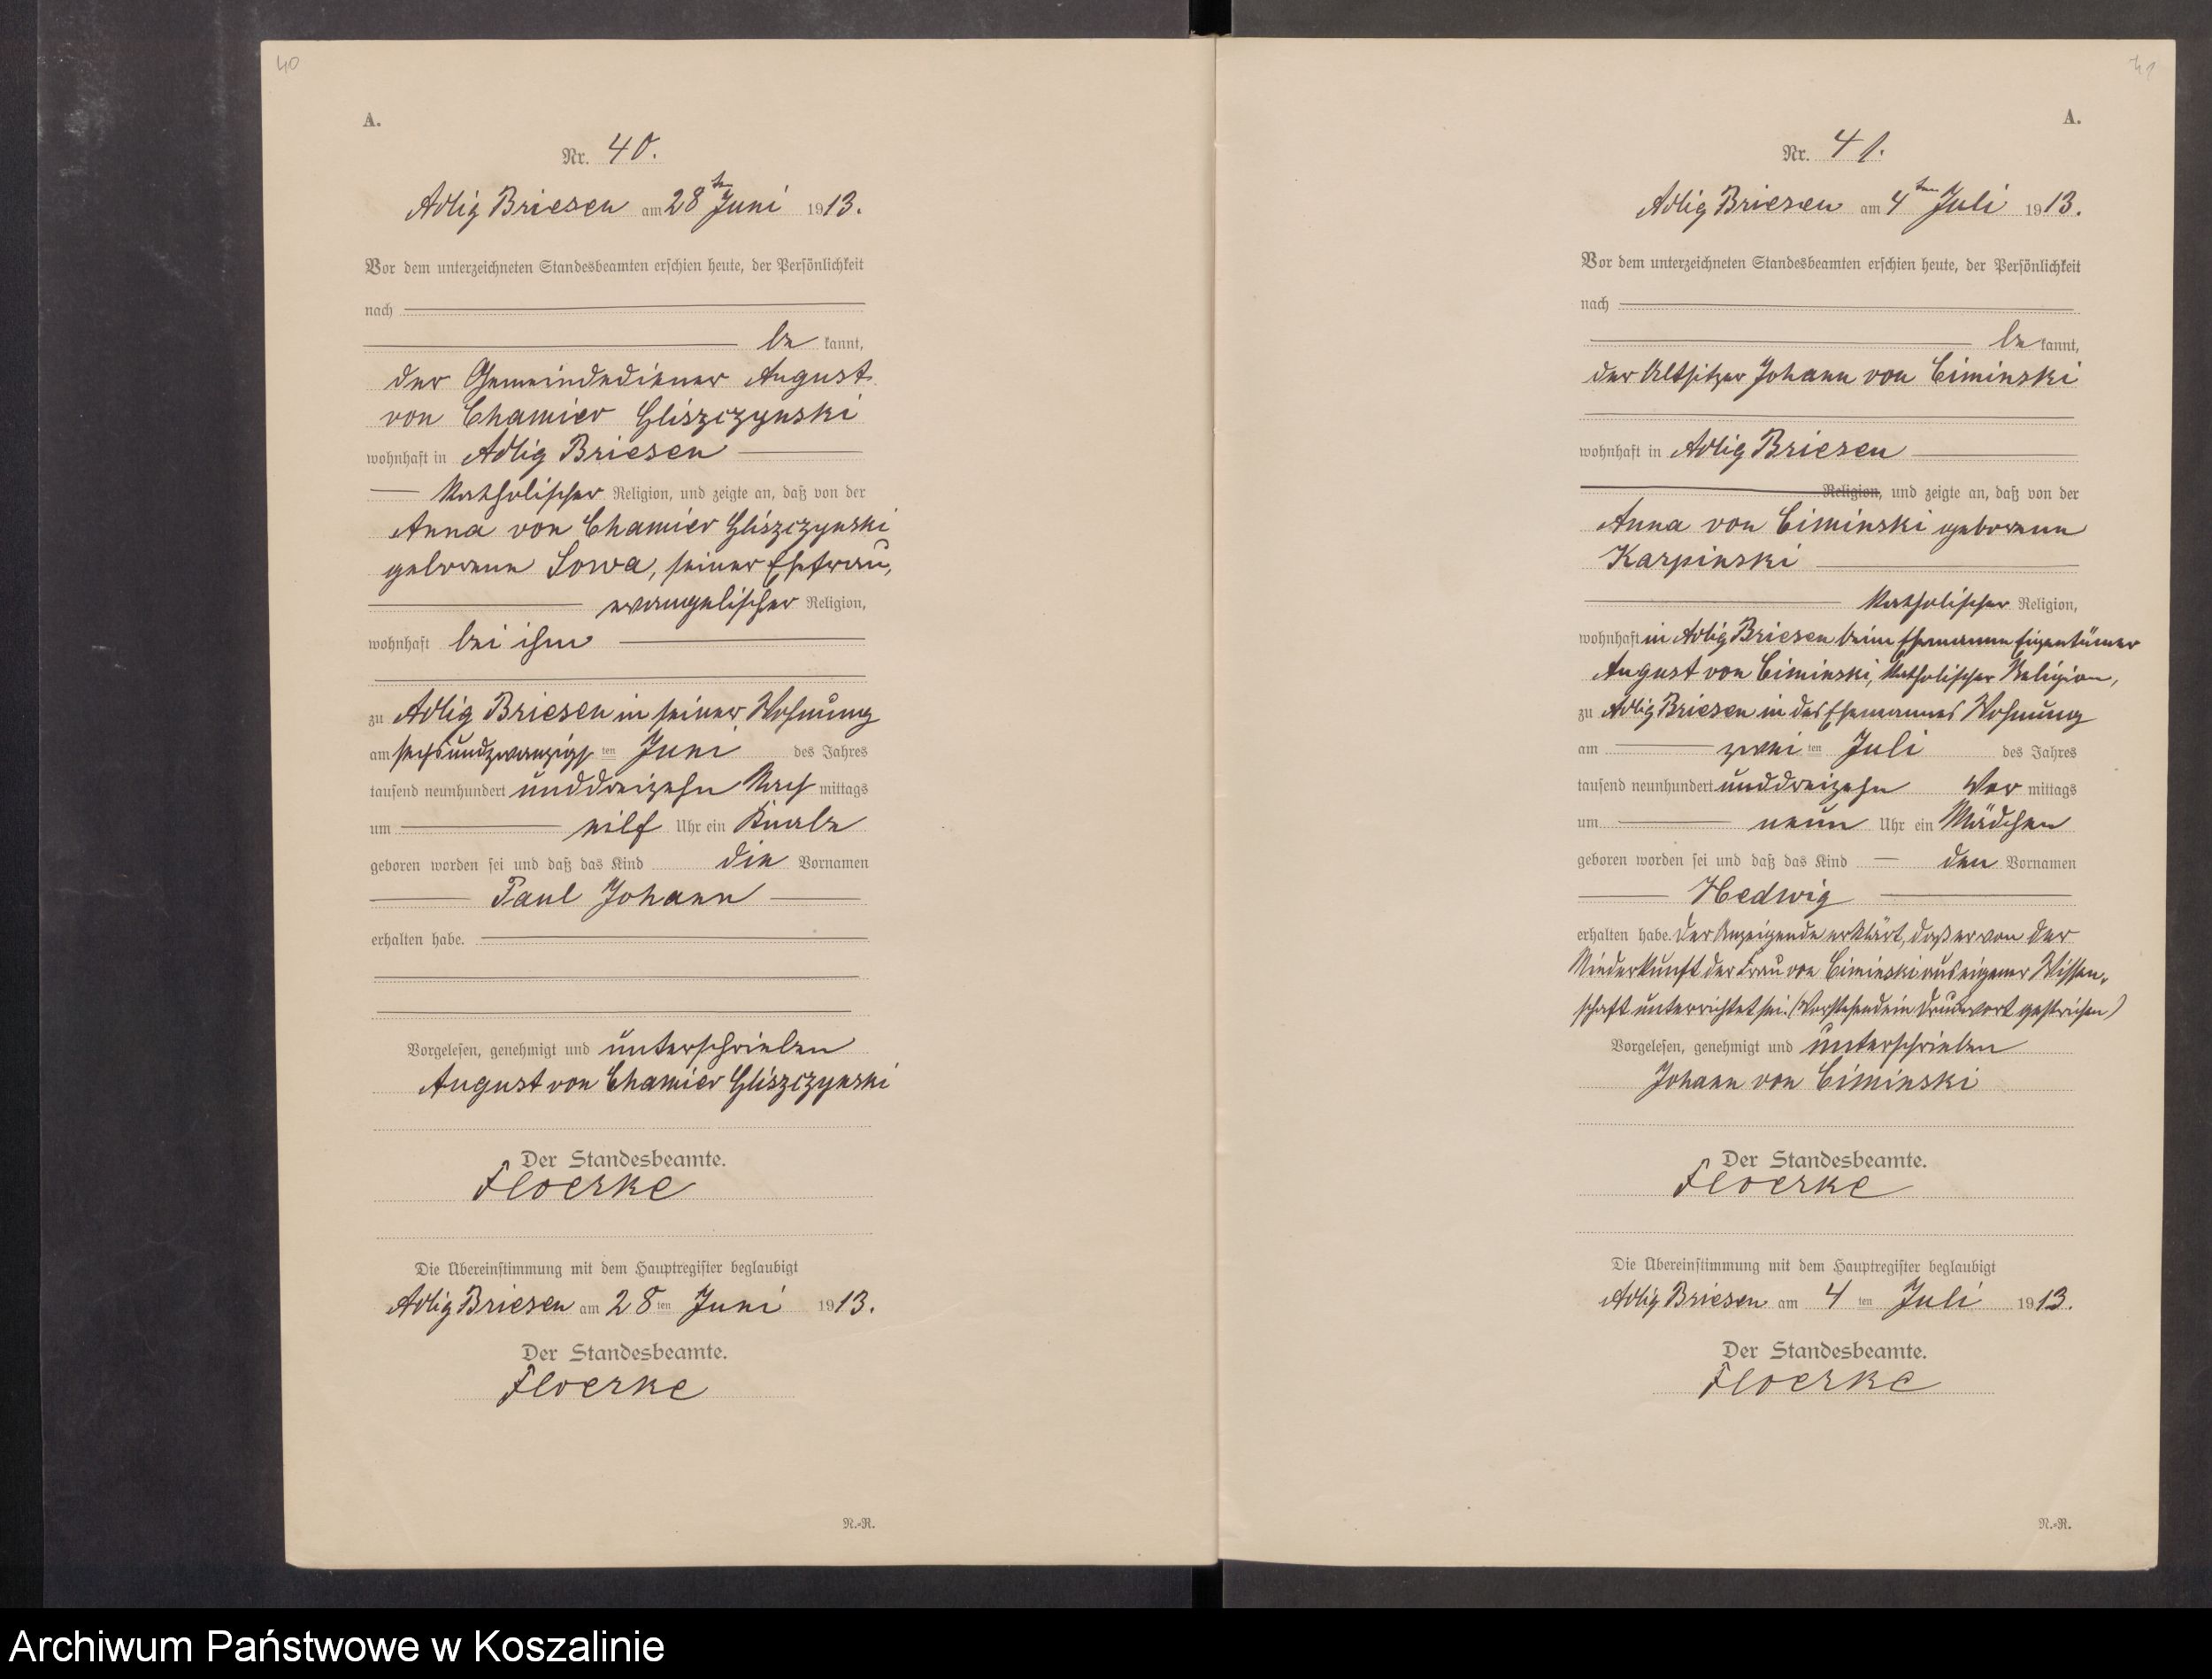 40
A.
Nr. 40.
Adlig Briesen am 28ten Juni 1913.
Vor dem unterzeichneten Standesbeamten erschien heute, der Persönlichkeit
nach
be kannt,
der Gemeindediener August
von Chamier Gliszczynski
wohnhaft in Adlig Briesen
katholischer Religion, und zeigte an, daß von der
Anna von Chamier Gliszczynski
geborene Sowa, seiner Ehefrau,
evangelischer Religion,
wohnhaft bei ihm
zu Adlig Briesen in seiner Wohnung
am sechsundzwanzigs ten Juni des Jahres
tausend neunhundert unddreizehn Nach mittags
um elf Uhr ein Knabe
geboren worden sei und daß das Kind die Vornamen
Paul Johann
erhalten habe.
Vorgelesen, genehmigt und unterschrieben
August von Chamier Gliszczynski
Der Standesbeamte.
Floerke
Die Übereinstimmung mit dem Hauptregister beglaubigt
Adlig Briesen am 28 ten Juni 1913.
Der Standesbeamte.
Floerke
N.-R.
41
A.
Nr. 41.
Adlig Briesen am 4ten Juli 1913.
Vor dem unterzeichneten Standesbeamten erschien heute, der Persönlichkeit
nach
be kannt,
der Altsitzer Johann von Ciminski
wohnhaft in Adlig Briesen
Religion, und zeigte an, daß von der
Anna von Ciminski geborene
Karpinski
katholischer Religion,
wohnhaft in Adlig Briesen beim Ehemanne Eigentümer
August von Ciminski, katholischer Religion,
zu Adlig Briesen in des Ehemannes Wohnung
am zwei ten Juli des Jahres
tausend neunhundert unddreizehn Vor mittags
um neun Uhr ein Mädchen
geboren worden sei und daß das Kind den Vornamen
Hedwig
erhalten habe. Der Anzeigende erklärt, daß er von der
Niederkunft der Frau von Ciminski aus eigener Wissen-
schaft unterrichtet sei. (Vorstehend ein Druckwort gestrichen)
Vorgelesen, genehmigt und unterschrieben
Johann von Ciminski
Der Standesbeamte.
Floerke
Die Übereinstimmung mit dem Hauptregister beglaubigt
Adlig Briesen am 4 ten Juli 1913.
Der Standesbeamte.
Floerke
N.-R.
Archiwum Państwowe w Koszalinie